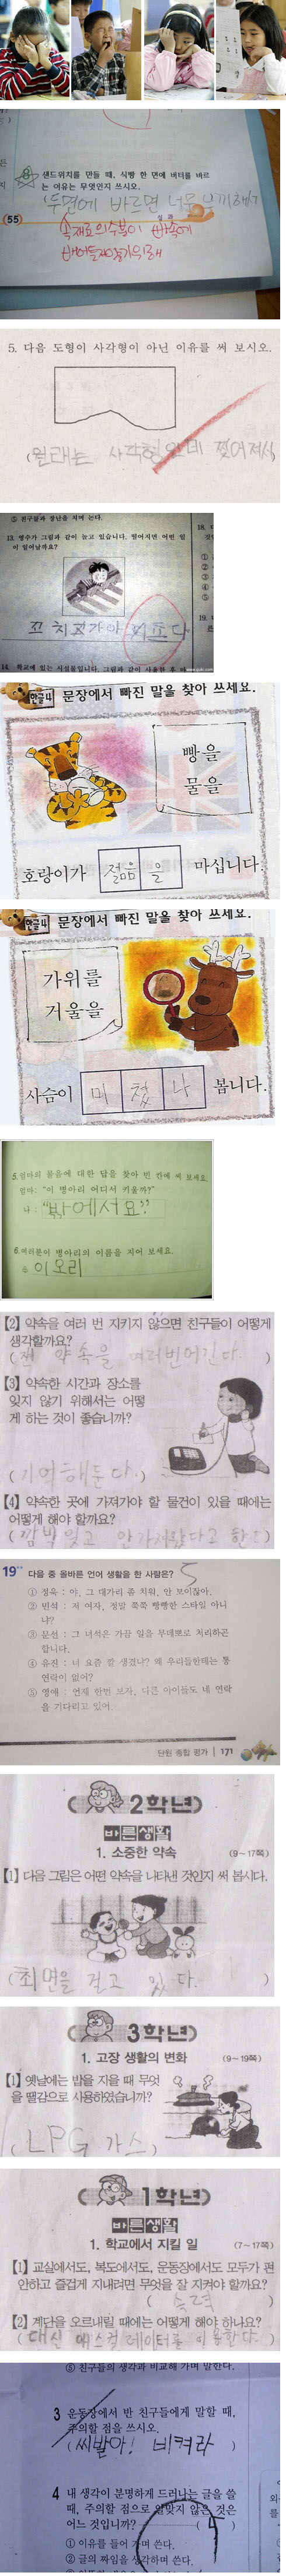 8 샌드위치를 만들 때, 식빵 한 면에 버터를 바르
는 이유는 무엇인지 쓰시오.
두면에 바르면 너무 느끼해서
55
속재료의 수분이 빵속에
배어들지않게하기위해
5. 다음 도형이 사각형이 아닌 이유를 써 보시오.
(원래는 사각형인데 찢어져서
⑤ 친구들과 장난을 치며 논다.
13. 영수가 그림과 같이 놀고 있습니다. 떨어지면 어떤 일
이 일어날까요?
14. 학교에 있는 시설물입니다. 그림과 같이 사용한 후
한글4 문장에서 빠진 말을 찾아 쓰세요.
빵을
물을
호랑이가 젊음을 마십니다.
한글4 문장에서 빠진 말을 찾아 쓰세요.
가위를
거울을
사슴이 미쳤나 봅니다.
5. 엄마의 물음에 대한 답을 찾아 빈 칸에 써 보세요.
엄마: "이 병아리 어디서 키울까?"
나: "밖에서요."
6. 여러분이 병아리의 이름을 지어 보세요.
이오리
【2】 약속을 여러 번 지키지 않으면 친구들이 어떻게
생각할까요?
(쟨 약속을 여러번어긴다.)
【3】 약속한 시간과 장소를
잊지 않기 위해서는 어떻
게 하는 것이 좋습니까?
(기억해둔다.)
【4】 약속한 곳에 가져가야 할 물건이 있을 때에는
어떻게 해야 할까요?
(깜박잊고 안가져왔다고 한다)
19 다음 중 올바른 언어 생활을 한 사람은? 5
① 정욱 : 야, 그 대가리 좀 치워, 안 보이잖아.
② 민석 : 저 여자, 정말 쭉쭉 빵빵한 스타일 아니
냐?
③ 문선 : 그 녀석은 가끔 일을 무데뽀로 처리하곤
합니다.
④ 유진 : 너 요즘 잘 생겼냐? 왜 우리들한테는 통
연락이 없어?
⑤ 영애 : 언제 한번 보자, 다른 아이들도 네 연락
을 기다리고 있어.
단원 종합 평가 | 171
2학년
바른생활
1. 소중한 약속 (9~17쪽)
【1】 다음 그림은 어떤 약속을 나타낸 것인지 써 봅시다.
(최면을 걸고 있다.)
3학년
1. 고장 생활의 변화 (9~19쪽)
【1】 옛날에는 밥을 지을 때 무엇
을 땔감으로 사용하였습니까?
(LPG 가스)
1학년
바른생활
1. 학교에서 지킬 일 (7~17쪽)
【1】 교실에서도, 복도에서도, 운동장에서도 모두가 편
안하고 즐겁게 지내려면 무엇을 잘 지켜야 할까요?
(속력)
【2】 계단을 오르내릴 때에는 어떻게 해야 하나요?
(대신 에스컬레이터를 이용한다.)
⑤ 친구들의 생각과 비교해 가며 말한다.
3 운동장에서 반 친구들에게 말할 때,
주의할 점을 쓰시오.
(씨발아! 비켜라)
4 내 생각이 분명하게 드러나는 글을 쓸
때, 주의할 점으로 알맞지 않은 것은
어느 것입니까? (4)
① 이유를 들어 가며 쓴다.
② 글의 짜임을 생각하며 쓴다.